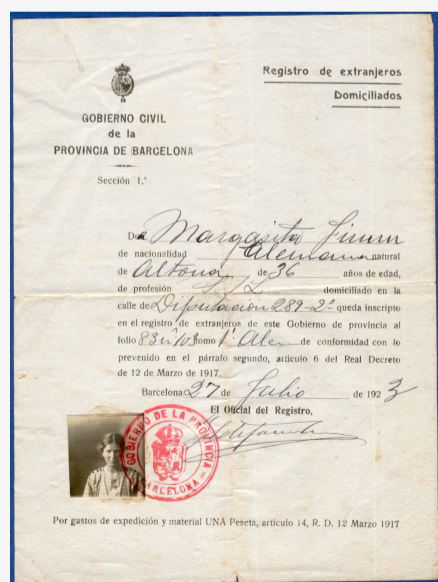 Registro de extranjeros
Domiciliados
GOBIERNO CIVIL
de la
PROVINCIA DE BARCELONA
Sección 1.ª
Margarita
de nacionalidad Alemana natural
de Altona de 36 años de edad,
de profesión S/L domiciliado en la
calle de Diputación 289-2º queda inscripto
en el registro de extranjeros de este Gobierno de provincia al
folio tomo 1º Alem de conformidad con lo
prevenido en el párrafo segundo, artículo 6 del Real Decreto
de 12 de Marzo de 1917.
Barcelona 27 de Julio de 1923
El Oficial del Registro,
GOBIERNO DE LA PROVINCIA
BARCELONA
Por gastos de expedición y material UNA Peseta, artículo 14, R. D. 12 Marzo 1917